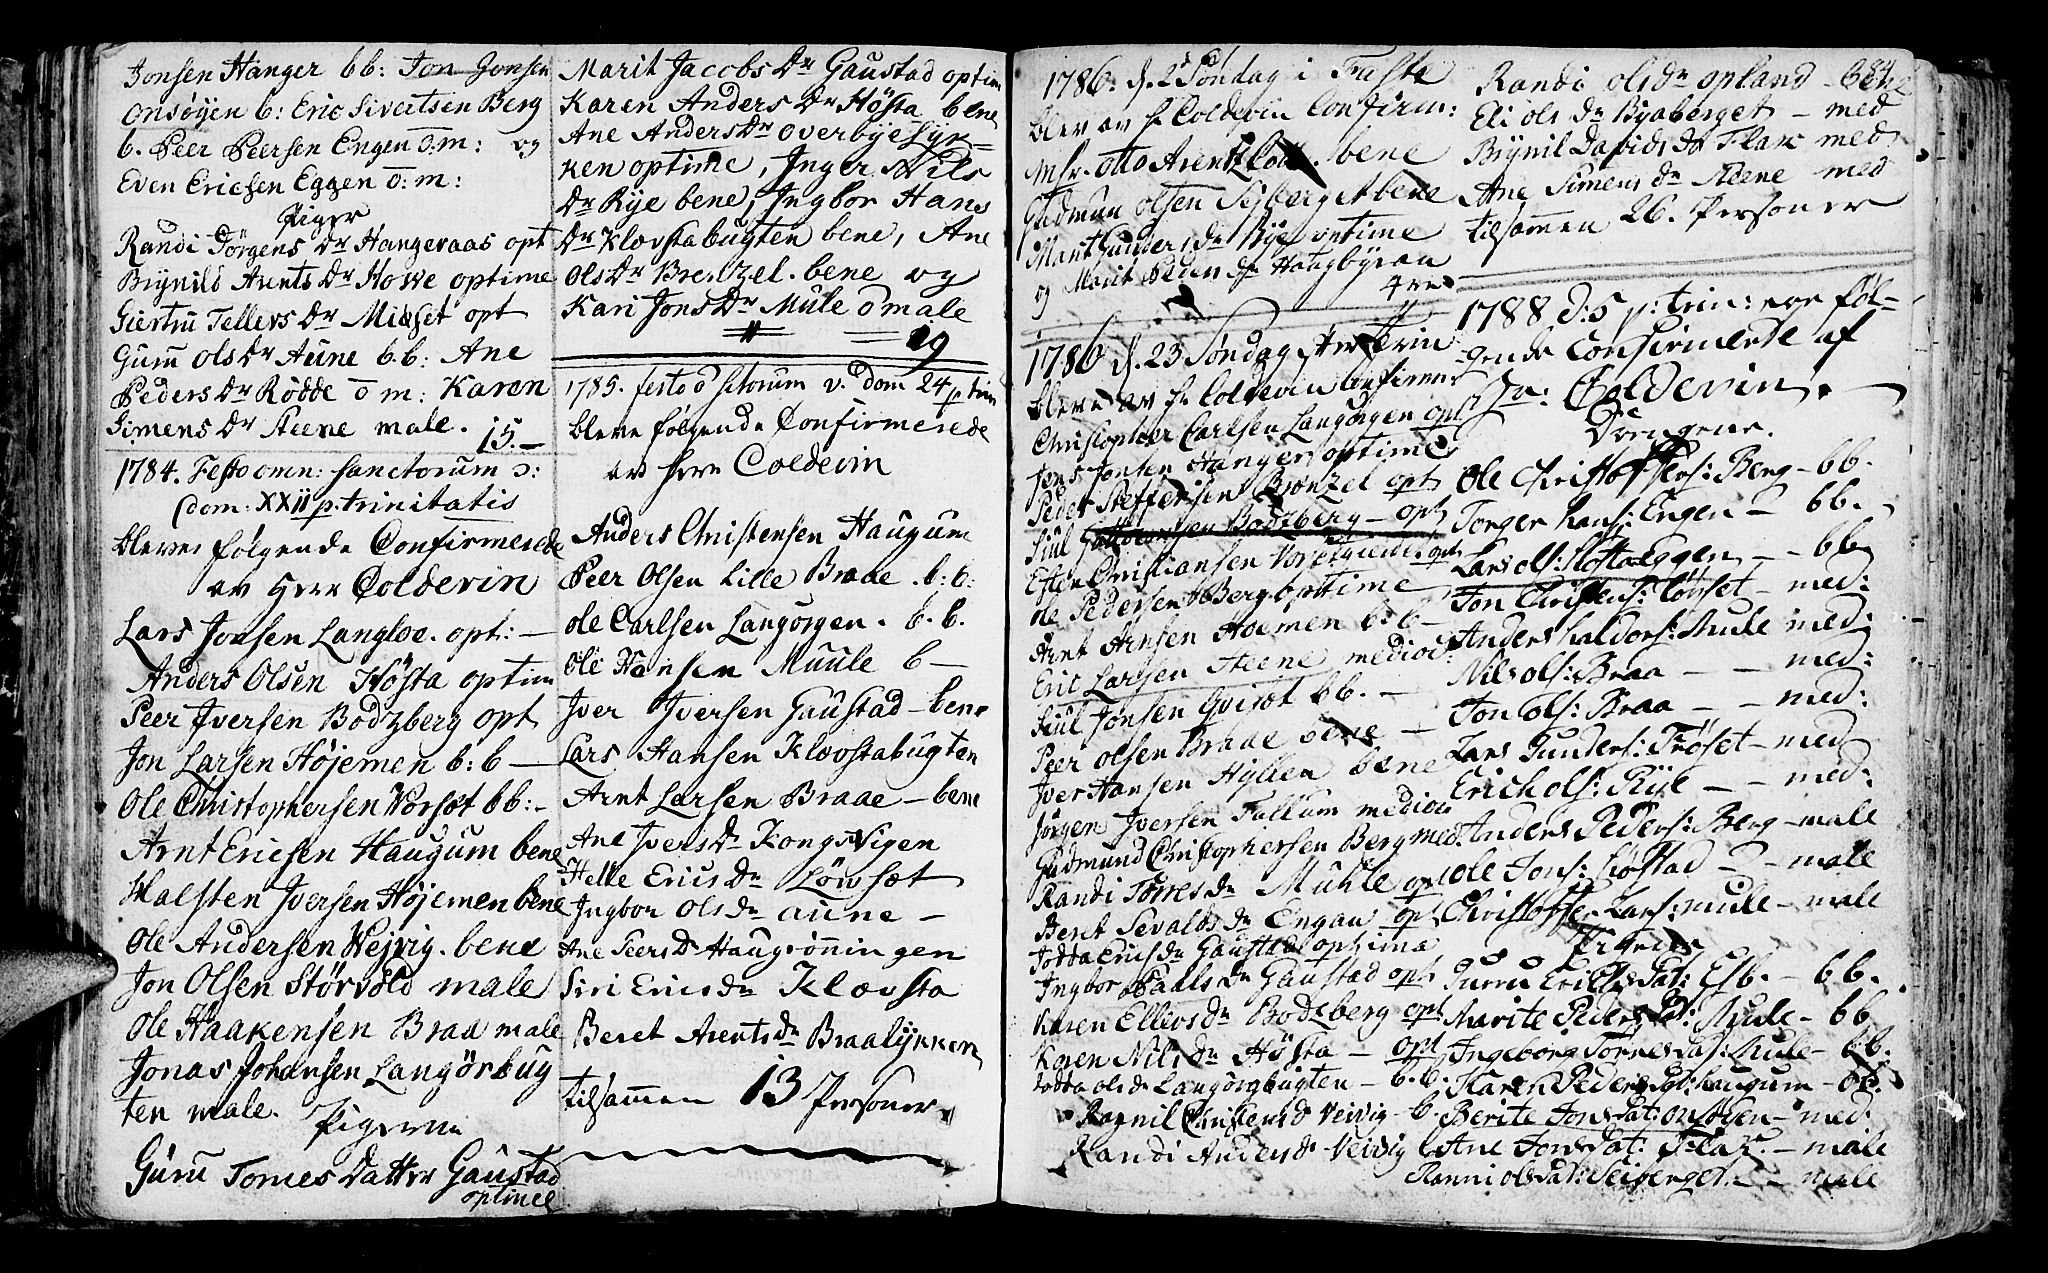 Jonsen Hanger bb: Jon Jonsen
Onsøyen b: Eric Sivertsen Berg
b. Peer Peersen Engen o:m: og
Even Ericsen Eggen o:m:
Piger
Randi Jørgens Dr Hangeraas opt
Brynild Arents Dr Howe optime
Giertru Tellers Dr Midset opt
Guru Ols Dr Aune b.b: Ane
Peders Dr Rødde o m: Karen
Simens Dr Steene male. 15.—
1784. Festo omn: sanctorum ɔ:
dom: XXII p: trinitatis
bleve følgende Confirmerede
av Herr Coldevin
Lars Jonsen Langloe. opt: —
Anders Olsen Høsta optim
Peer Iversen Bodzberg opt
Jon Larsen Højemen b: b —
Ole Christophersen Vorset bb: -
Arnt Ericsen Haugum bene
Halsten Iversen Højemen bene
Ole Andersen Wejvig. bene
Jon Olsen Størvold male
Ole Haakensen Braa male
Jonas Johansen Langørbug
ten male.
Pigerne
Guru Tornes Datter Gaustad
optimee
Marit Jacobs Dr Gaustad optim
Karen Anders Dr Høsta bene
Ane Anders Dr Overbye Lyk-
ken optime, Inger Nils
Dr Rye bene, Ingbor Hans
Dr Klovstabugten bene, Ane
Ols Dr Brenzel. bene og
Kari Jons Dr Mule o male
19
1785. festo d dom 24 p trin
bleve følgende Confirmerede
av Herr Coldevin
Anders Christensen Haugum
Peer Olsen Lille Braae. b: b:
Ole Carlsen Langørgen. b. b.
Ole Hansen Muule b —
Iver Iversen Gaustad — bene
Lars Hansen Klovstabugten
Arnt Larsen Braae — bene
Ane Ivers Dr Kongsvigen
Helle Erics Dr Løvset
Ingbor Ols Dr Aune —
Ane Peers Dr Haugrønningen
Siri Erics Dr Klovsta
Beret Arents Dr Braalykken
tilsammen 13 Personer
1786. d. 2 Søndag i Faste
blev av H Coldevin Confirm:
Otto Arentz bene
Gudmun Olsen Sejberget bene
Marit Gunders Dr Rye optime
og Marit Peders Dr Haugbyraa
1786 d. 23 Søndag Trin
bleve av Hr Coldevin Confirm
Christopher Carlsen Langørgen opt
Jens Jonsen Hanger optime
Peder Steffensen Brenzel opt
Siul Bodzberg — opt
Christiansen opt
Ole Pedersen Berg optime
Arnt Arnsen Hoemen b:b —
Eric Larsen Steene medioc:
Siul Jonsen Qviset bb. —
Peer Olsen Braae bene —
Iver Hansen Hyllen bene
Jørgen Iversen Fallum medioc
Gudmund Christophersen Berg med.
Randi Torres Dr Muhle opt
Beret Sevalds Dr Engan opt
Jodda Erics Dr Gaustad optima
Ingbor Paals Dr Gaustad opt
Karen Ellevs Dr Bodzberg opt
Karen Nils Dr Høsta — opt
Jodda Ols Dr Langørgbugten — b. b.
Ragnil Christens Dr Veivig — b.
Randi Anders Dr Veivig b
Randi Ols Dr Opland — bene
Eli Ols Dr Byaberget — med
Brynil Davids Dr Flak med
Ane Simens Dr Steene med
tilsammen 26. Personer
1788 d: 5 p: trin: ere føl-
gende Confirmerede af
Hr: Coldevin. —
Drengene.
Ole Christophers: Berg — bb.
Torger Hans: Engen — bb.
Lars Ols: Høstaeggen — - bb
Jon Christens: Løvset — med:
Anders Haldors: Mule med:
Nils Ols: Braa — — med:
Jon Ols: Braa — — med:
Lars Gunders: Frøset — med
Erich Ols: Rye — — med:
Anders Peders: Berg — male
Ole Jons: Løfstad — — male
Christoffer Lars: Mule — male
Pigerne
Gurru Erichs Dat: Esb. — bb.
Marite Peders Dat: Mule — bb
Ingeborg Tornes Dat: Mule — bb.
Karen Peders Dat: Haugum — bb:
Berite Jons Dat: Onsøyen — med:
Ane Jons Dat: Flak. — male
Ranni Ols Dat: Seiberget. — male